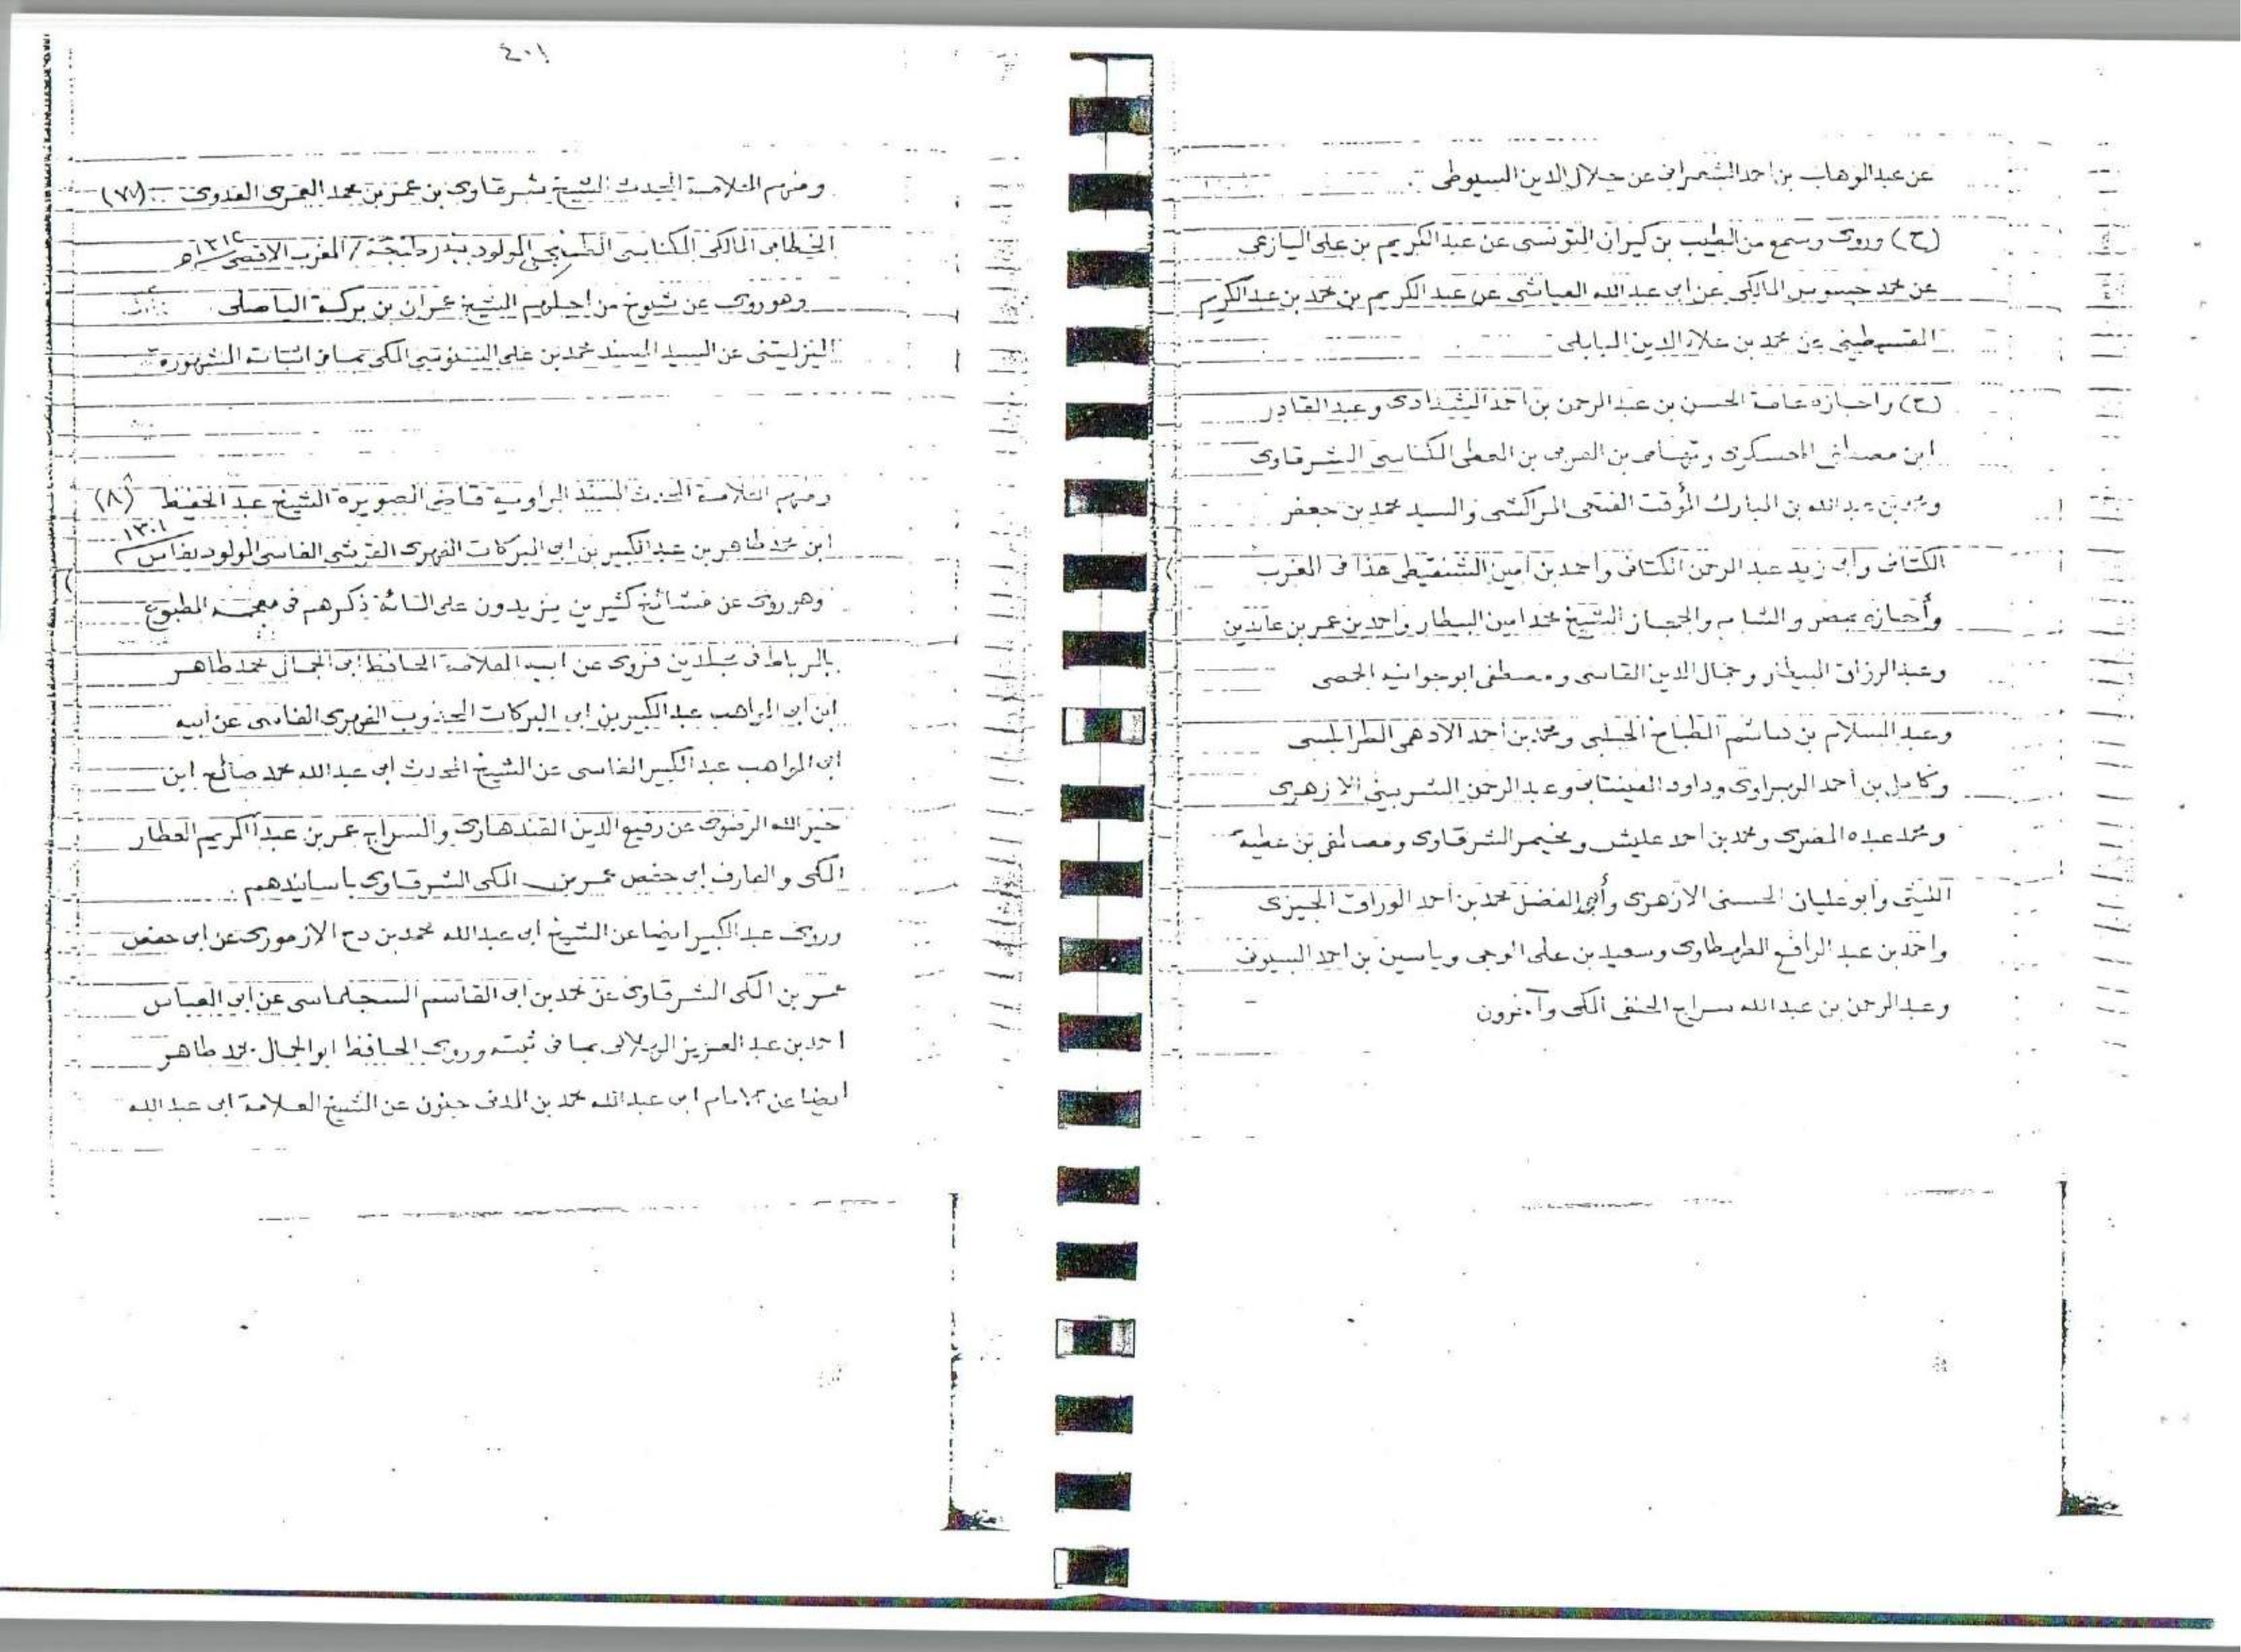 عن عبدالوهاب بن احمد الشعرانى عن جلال الدين السيوطى
(ح) وروى وسمع من الطيب بن كيران التونسى عن عبدالكريم بن على اليازغى
عن محمد جسوس المالكى عن ابى عبدالله العياشى عن عبدالكريم بن محمد بن عبدالكريم
القسمطينى عن محمد بن علاء الدين البابلى
(ح) واجازه عامة الحسن بن عبدالرحمن بن احمد الشدادى وعبدالقادر
ابن مصطفى المعسكرى وتهامى بن العربى بن المعطى الكناسى الشرقاوى
ومحمد بن عبدالله بن المبارك المؤقت الفتحى المراكشى والسيد محمد بن جعفر
الكتانى وابى زيد عبدالرحمن الكتانى واحمد بن امين الشنقيطى هذا فى الغرب
وأجازه بمصر والشام والحجاز الشيخ محمد امين البيطار واحمد بن عمر بن عابدين
وعبدالرزاق البيطار وجمال الدين القاسمى ومصطفى ابوجوانيه الحمصى
وعبد السلام بن هاشم الطباخ الحلبى ومحمد بن احمد الادهمى الطرابلسى
وكامل بن احمد الهبراوى وداود وعبدالرحمن الشربينى الازهرى
ومحمد عبده المصرى ومحمد بن احمد عليش ومخيمر الشرقاوى ومصطفى بن عطية
وابو عليان الحسنى الازهرى وأبى الفضل محمد بن احمد الوراق الجيزى
واحمد بن عبد الرافع الطهطاوى وسعيد بن على الوجى وياسين بن احمد
وعبدالرحمن بن عبدالله سراج الحنفى المكى وآخرون
٤٠١
ومنهم العلامة المحدث الشيخ شرقاوى بن عمر بن محمد العمرى العدوى (٧٧)
الخطابى المالكى الكناسى الطنجى المولود ببندر طنجة / المغرب الاقصى ١٣١٤هـ
وهو روى عن شيوخ من اجلهم الشيخ عمران بن بركة الباصلى
اليزليتنى عن السيد السند محمد بن على السنوسى المكى بما فى اثباته الشهورة
ومنهم العلامة المحدث المسند الراوية قاضى الصويرة الشيخ عبدالحفيظ (٨)
ابن محمد طاهر بن عبدالكبير بن ابى البركات الفهرى القرشى الفاسى المولود بفاس ١٣٠١
وهو روى عن مشائخ كثيرين يزيدون على المائة ذكرهم فى معجمه المطبوع
بالرباط فى مجلدين فروى عن ابيه العلامة الحافظ ابى الجمال محمد طاهر
ابن ابى المواهب عبدالكبير بن ابى البركات المجذوب الفهرى الفاسى عن ابيه
ابى المواهب عبدالكبير الفاسى عن الشيخ المحدث ابى عبدالله محمد صالح ابن
خيرالله الرضوى عن رفيع الدين القندهارى والسراج عمر بن عبدالكريم العطار
المكى والعارف ابى حفص عمر بن المكى الشرقاوى باسانيدهم
وروى عبدالكبير ايضا عن الشيخ ابى عبدالله محمد بن دح الازمورى عن ابى حفص
عمر بن المكى الشرقاوى عن محمد بن ابى القاسم السجلماسى عن ابى العباس
احمد بن عبدالعزيز الهلالى بما فى ثبته وروى الحافظ ابوالجمال محمد طاهر
ايضا عن الامام ابى عبدالله محمد بن المدنى جنون عن الشيخ العلامة ابى عبدالله